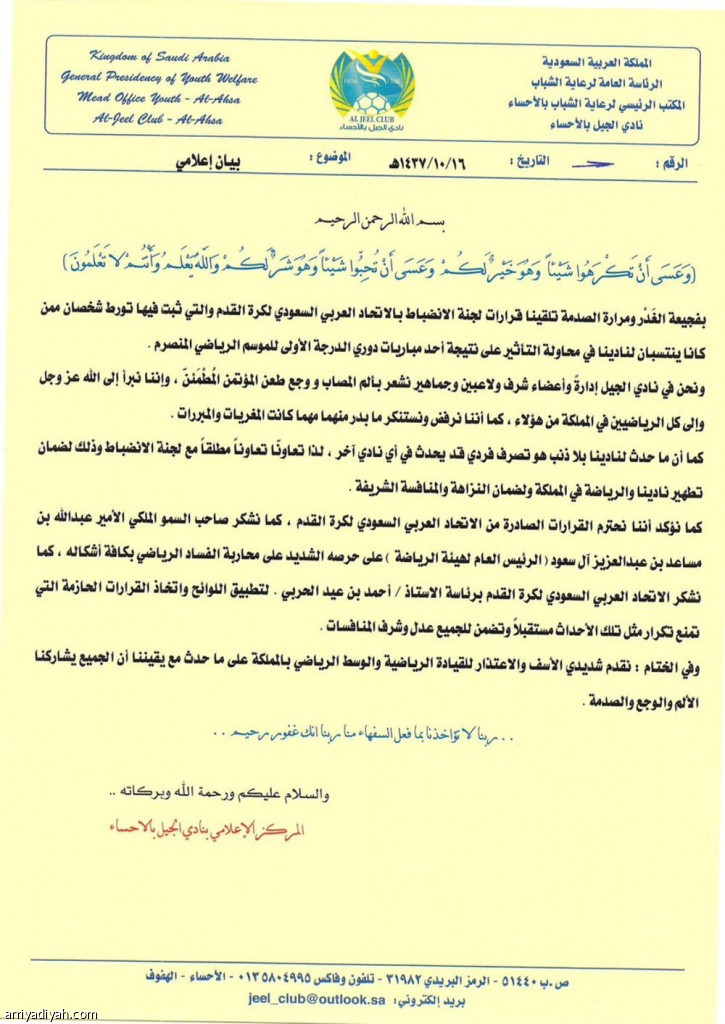 Kingdom of Saudi Arabia
General Presidency of Youth Welfare
Mead Office Youth - Al-Ahsa
Al-Jeel Club - Al-Ahsa
AL JEEL CLUB
نادي الجيل بالأحساء
المملكة العربية السعودية
الرئاسة العامة لرعاية الشباب
المكتب الرئيسي لرعاية الشباب بالأحساء
نادي الجيل بالأحساء
الرقم : التاريخ : ١٤٣٧/١٠/١٦هـ الموضوع : بيان إعلامي
بسم الله الرحمن الرحيم
(وَعَسَى أَنْ تَكْرَهُوا شَيْئاً وَهُوَ خَيْرٌ لَكُمْ وَعَسَى أَنْ تُحِبُّوا شَيْئاً وَهُوَ شَرٌّ لَكُمْ وَاللَّهُ يَعْلَمُ وَأَنْتُمْ لا تَعْلَمُونَ)
بفجيعة الغَدْر ومرارة الصدمة تلقينا قرارات لجنة الانضباط بالاتحاد العربي السعودي لكرة القدم والتي ثبت فيها تورط شخصان ممن
كانا ينتسبان لنادينا في محاولة التأثير على نتيجة أحد مباريات دوري الدرجة الأولى للموسم الرياضي المنصرم .
ونحن في نادي الجيل إدارةً وأعضاء شرف ولاعبين وجماهير نشعر بألم المصاب و وجع طعن المؤتمن المُطْمَئنّ ، وإننا نبرأ إلى الله عز وجل
وإلى كل الرياضيين في المملكة من هؤلاء ، كما أننا نرفض ونستنكر ما بدر منهما مهما كانت المغريات والمبررات .
كما أن ما حدث لنادينا بلا ذنب هو تصرف فردي قد يحدث في أي نادي آخر ، لذا تعاونّا تعاوناً مطلقاً مع لجنة الانضباط وذلك لضمان
تطهير نادينا والرياضة في المملكة ولضمان النزاهة والمنافسة الشريفة .
كما نؤكد أننا نحترم القرارات الصادرة من الاتحاد العربي السعودي لكرة القدم ، كما نشكر صاحب السمو الملكي الأمير عبدالله بن
مساعد بن عبدالعزيز آل سعود ( الرئيس العام لهيئة الرياضة ) على حرصه الشديد على محاربة الفساد الرياضي بكافة أشكاله ، كما
نشكر الاتحاد العربي السعودي لكرة القدم برئاسة الاستاذ / أحمد بن عيد الحربي . لتطبيق اللوائح واتخاذ القرارات الحازمة التي
تمنع تكرار مثل تلك الأحداث مستقبلاً وتضمن للجميع عدل وشرف المنافسات .
وفي الختام : نقدم شديدي الأسف والاعتذار للقيادة الرياضية والوسط الرياضي بالمملكة على ما حدث مع يقيننا أن الجميع يشاركنا
الألم والوجع والصدمة .
. . ربنا لا تؤاخذنا بما فعل السفهاء منا ربنا انك غفور رحيم . .
والسلام عليكم ورحمة الله وبركاته ..
المركز الإعلامي بنادي الجيل بالاحساء
ص .ب ٥١٤٤٠ - الرمز البريدي ٣١٩٨٢ - تلفون وفاكس ٠١٣٥٨٠٤٩٩٥ - الأحساء - الهفوف
بريد إلكتروني: jeel_club@outlook.sa
arriyadiyah.com